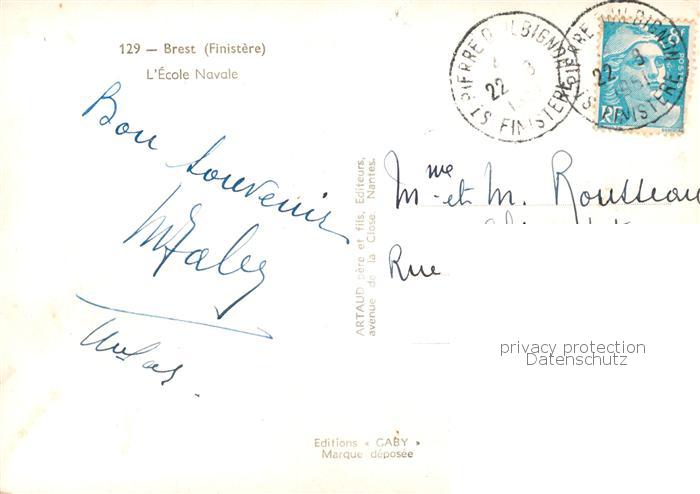 129 — Brest (Finistère)
L'École Navale
Bon souvenir
ARTAUD père et fils, Editeurs,
avenue de la Close. Nantes.
Editions « GABY »
Marque déposée
ST PIERRE QUILBIGNON
22 8
FINISTERE
ST PIERRE QUILBIGNON
22 8
1951
FINISTERE
8F
POSTES
RF
Mme et M. Rousseau
Rue
privacy protection
Datenschutz